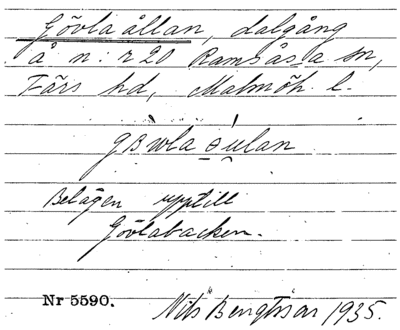 Gövla ållan, dalgång
å n:r 20 Ramsåsa sn,
Färs hd, Malmöh. l.
Belägen upptill
Gövlabacken.
Nr 5590. Nils Bengtsson 1935.